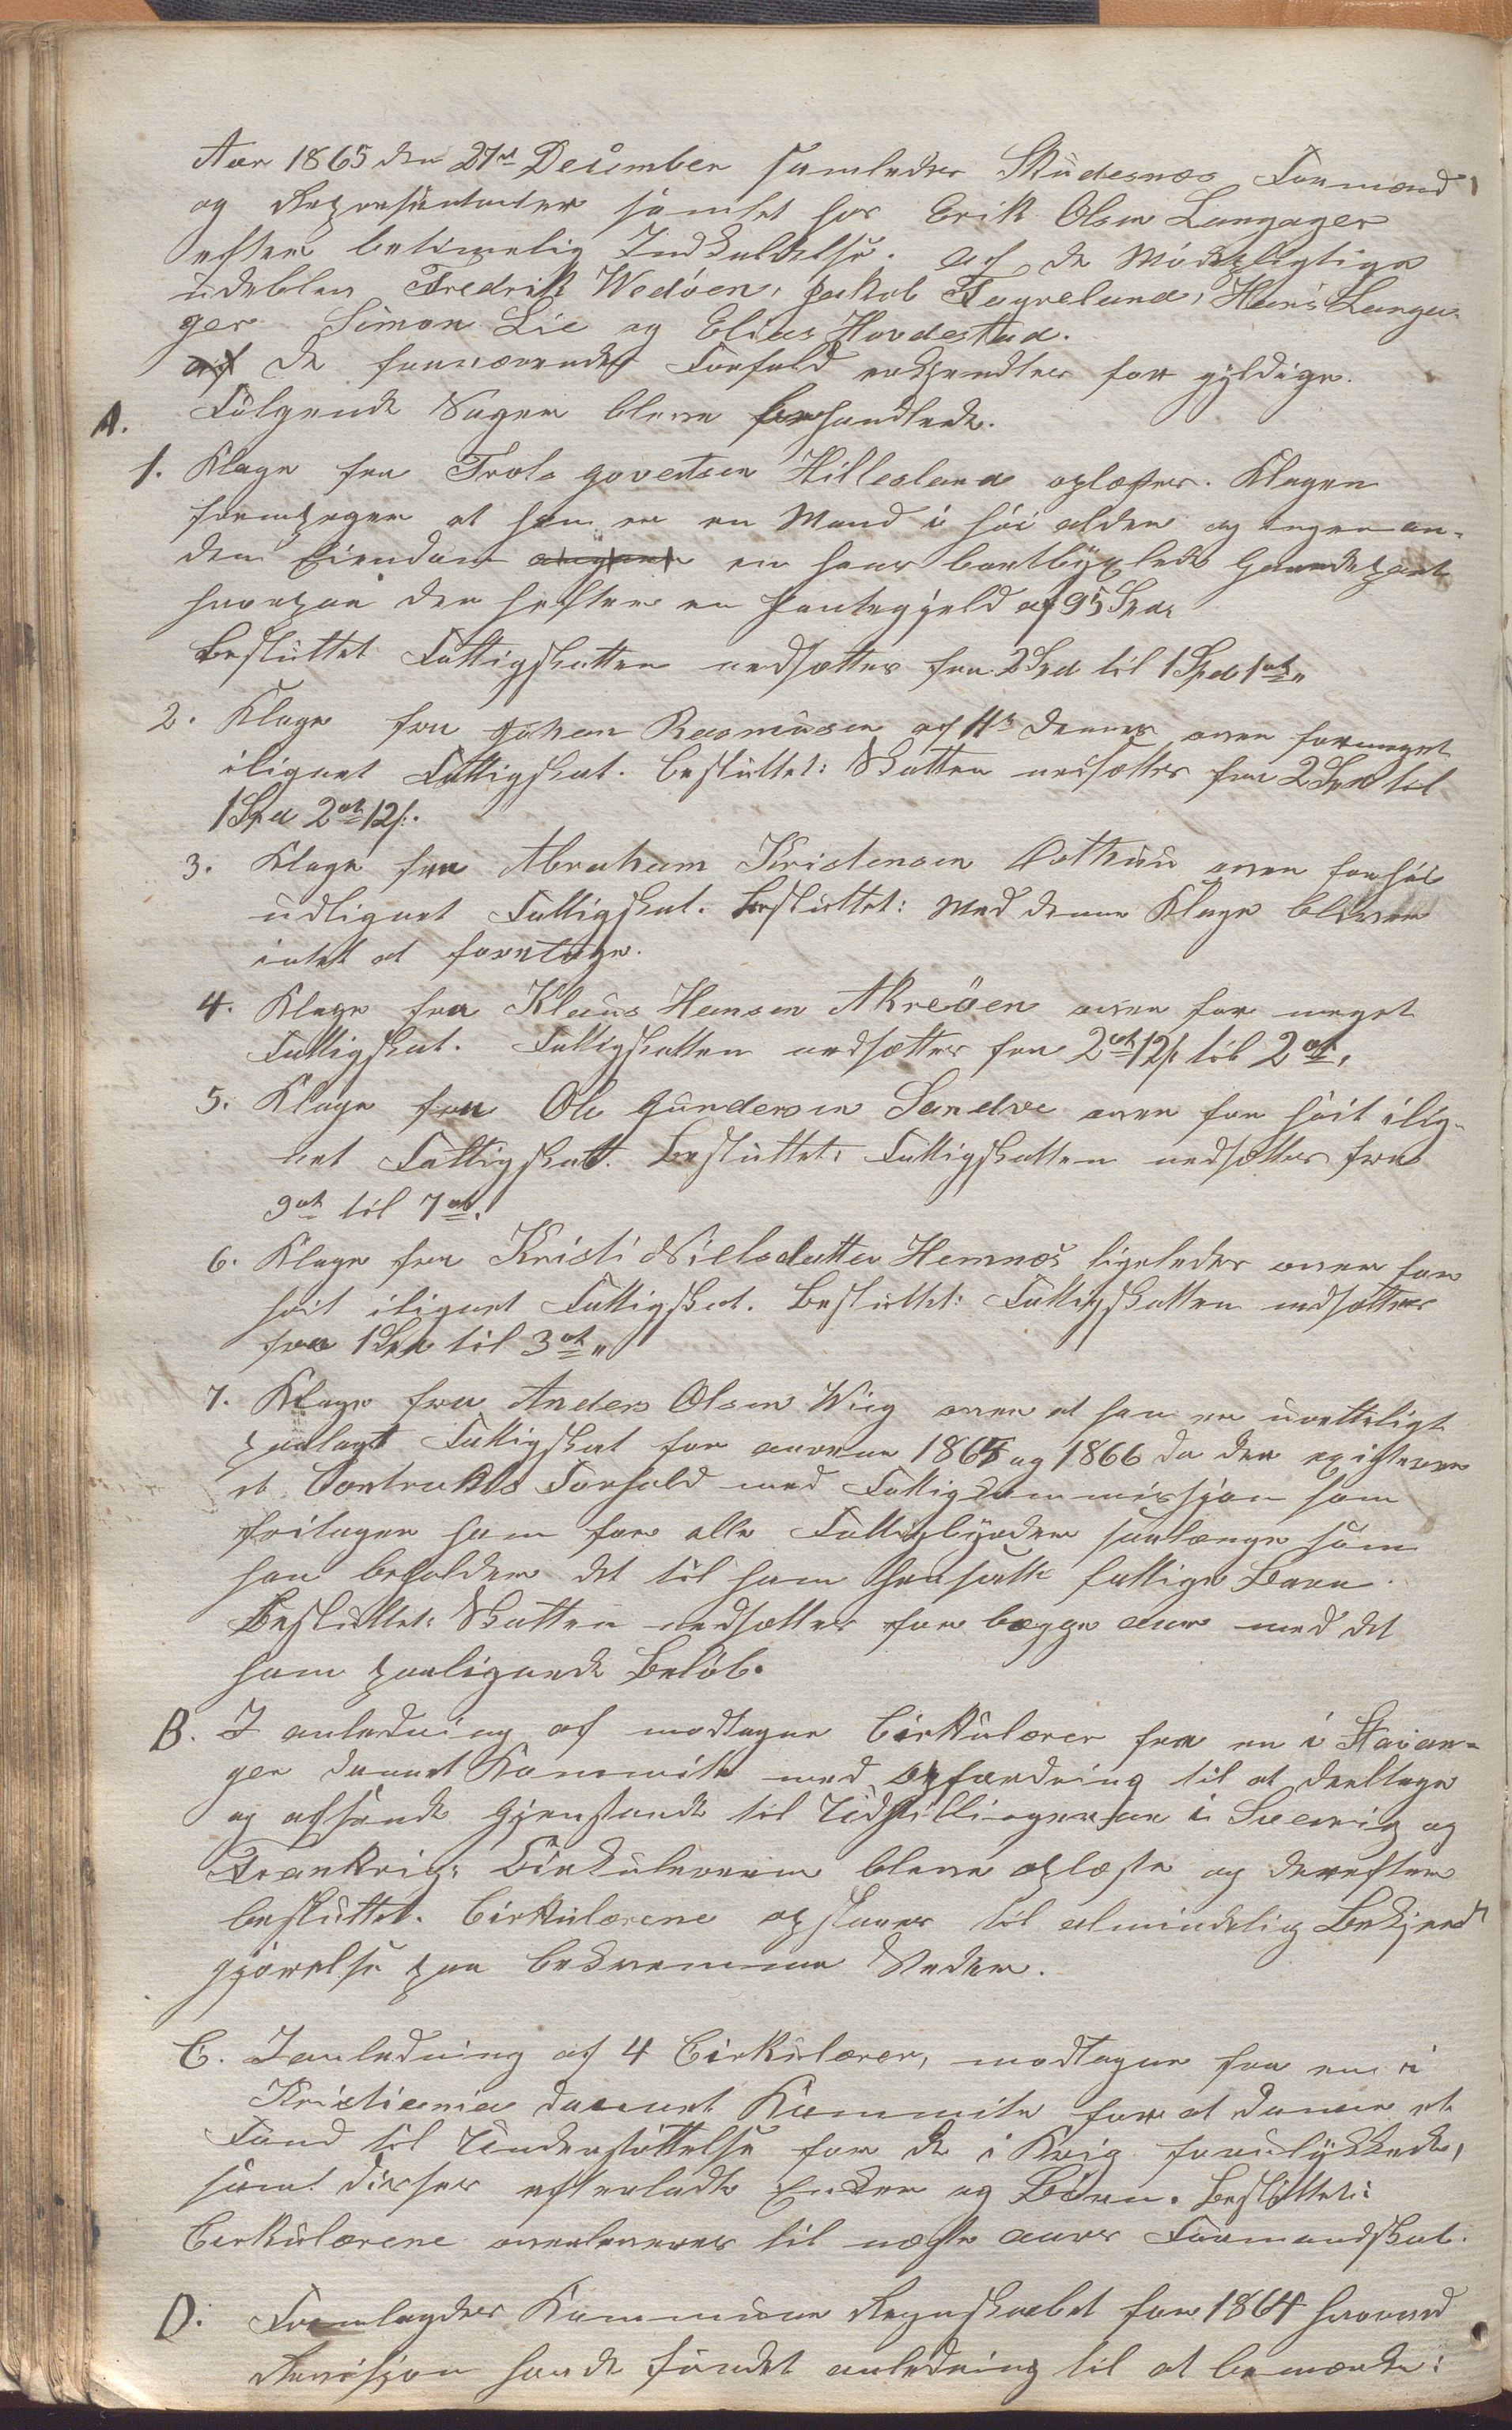 Aar 1865 den 27de December samledes Skudesnæs Formænd
og Repræsentanter samlet hos Erik Olsen Langager
efter betimelig Indkaldelse. Af de Mødepligtige
udeblev Fredrik Wedøen, Jakob Fagreland, Hans Langa-
ger Simon Lie og Elias Hovdestad.
af de fraværende Forfald erkjendtes for gyldige.
A. Følgende Sager bleve behandlede.
1. Klage fra Trols Govertsen Hillesland oplæstes. Klagen
 at han er en Mand i høi alder og ingen an-
den Eiendom en hans bortbyxlede Gaardepart
hvorpaa der hefter en Pantegjeld af 95 Spd.
Besluttet Fattigskatten nedsættes fra 2 Spd til 1 Spd 1 ort "
2. Klage fra Johan Rasmusen af H: Dennes over formeget
ilignet Fattigskat. Besluttet: Skatten nedsættes fra 2 Spd til
1 Spd 2 ort 12 s.
3. Klage fra Abraham Kristensen Østhuus over forhøi
udlignet Fattigskat. Besluttet: Med denne Klage bliver
intet at foretage.
4. Klage fra Klaus Hansen Akreøen over for meget
Fattigskat. Fattigskatten nedsættes fra 2 ort 12 s. til 2 ort.
5. Klage fra Ole Gundersen Sandve over for høit ilig-
net Fattigskat. Besluttet: Fattigskatten nedsættes fra
9 ort til 7 ort.
6. Klage fra Kristi Nielsdatter Hemnæs ligeledes over for
høit ilignet Fattigskat. Besluttet: Fattigskatten nedsættes
fra 1 Spd til 3 ort "
7. Klage fra Anders Olsen Wiig over at han er uretteligt
paalagt Fattigskat for aarene 1865 og 1866 da der existerer
et Contrakts Forhold med Fattigkommissjon som
fritager ham for alle Fattigbyrder saalænge som
han beholder det til ham hensatte fattige Barn.
Besluttet: Skatten nedsættes for begge aar med det
ham paalignede Beløb.
B. I anledning af modtagne Cirkulærer fra en i Stavan-
ger dannet Kommite med opfordring til at deeltage
og afsende Gjenstande til Udstillingerne i Sverrig og
Frankrig. Cirkulærerne bleve oplæste og derefter
besluttet. Cirkulærene opslaaes til almindelig Bekjendt
gjørelse paa bekvemme Steder.
C. I anledning af 4 Cirkulærer, modtagne fra en i
Kristiania dannet Kommite for at danne et
Fond til Understøttelse for de i Krig forulykkede,
samt disses efterladte Enker og Børn. Besluttet:
Cirkulærene overleveres til næste aars Formandskab.
D. Fremlagdes Kommune Regnskabet for 1864 hvorved
Revisjon havde fundet anledning til at bemærke: